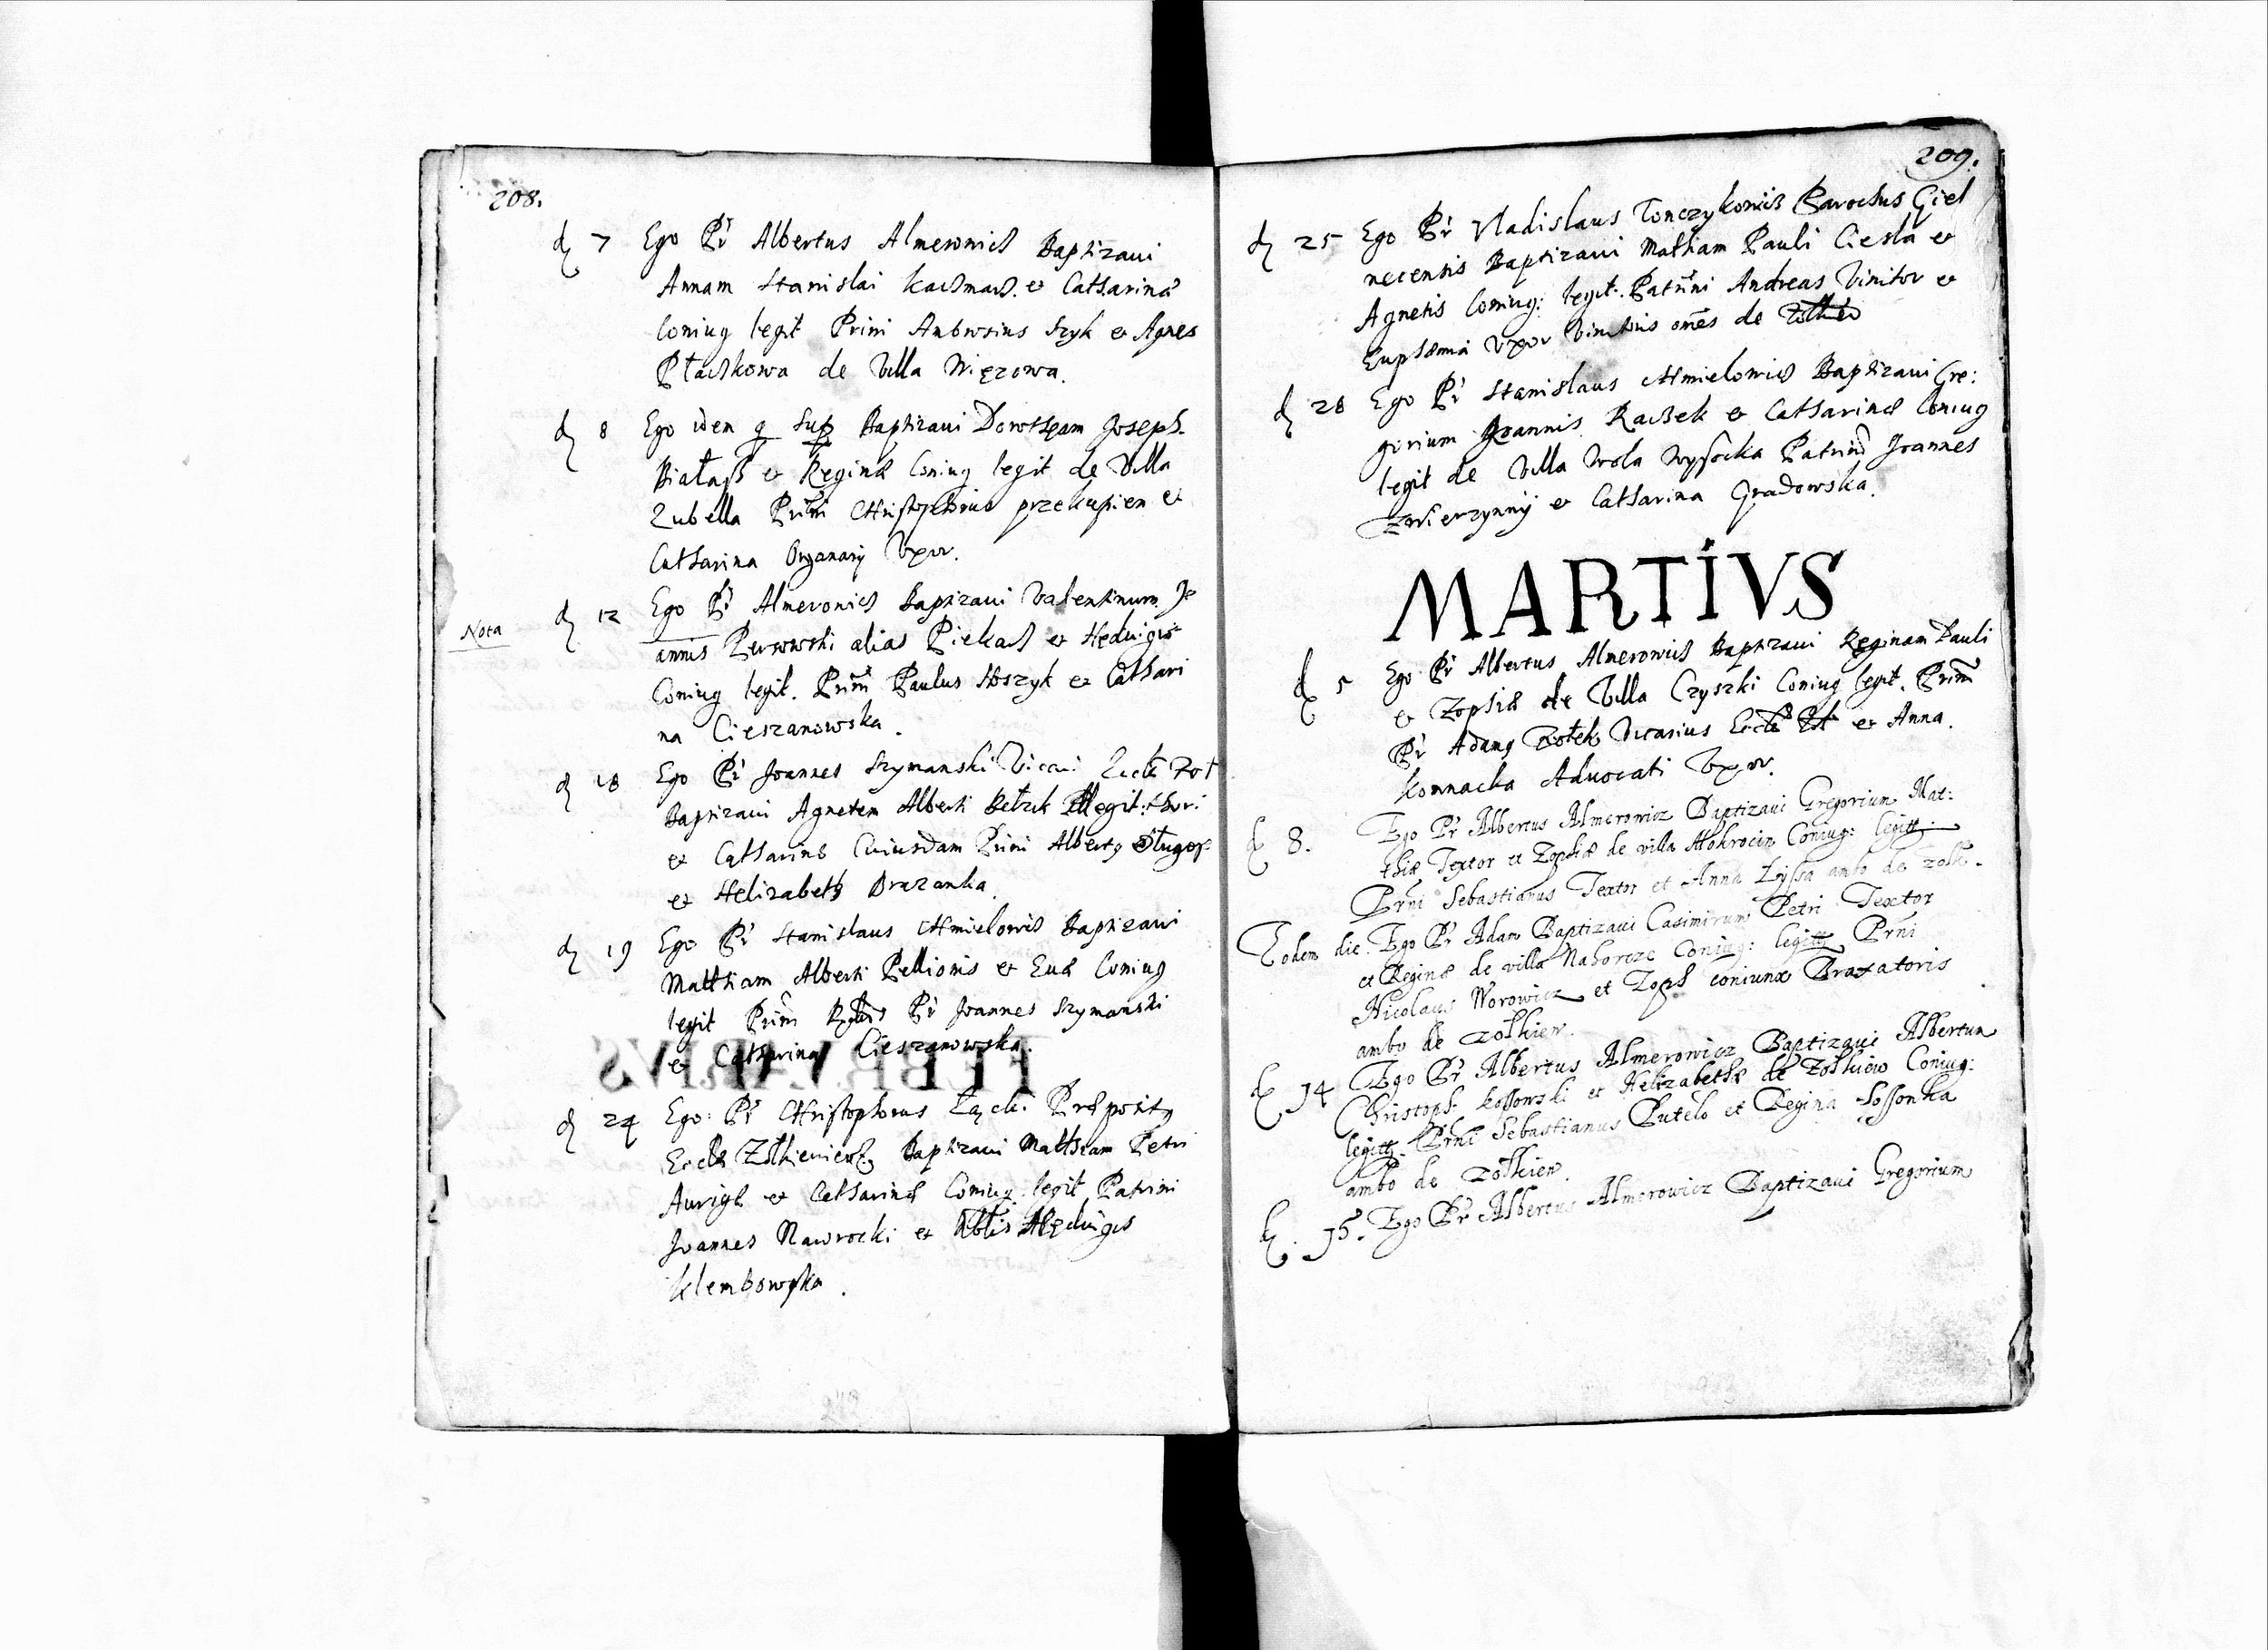 208.
d 7 Ego Pr Albertus Almerowicz Baptizaui
Annam Stanislai et Catharinæ
Coniug legit Prini Ambrosius Szyk et Agnes
Ptaszkowa de Villa Więzowa.
d 8 Ego idem q sup Baptizaui Dorotheam Joseph.
Białass et Reginæ Coniug legit de Villa
Zubella Prini Christophorus przekupien et
Catharina Organarij Vxor.
Nota
d 12 Ego Pr Almerowicz Baptizaui Valentinum Jo
annis alias Piekarz et Hedvigis
Coniug legit. Prini Paulus Hoszyk et Cathari
na Cieszanowska.
d 18 Ego Pr Joannes Szymanski Vicari Eccle Zoł
Baptizaui Agnetem Alberti Bełzek Illegit: thori
et Catharinæ Cuiusdam Prini Albertq
et Helizabeth Brazanka.
d 19 Ego Pr Stanislaus Chmielowicz Baptizaui
Matthiam Alberti Pellionis et Euæ Coniug
legit Prini Pr Joannes Szymanski
et Catharina Cieszanowska.
d 24 Ego Pr Christophorus Łącki Præpositq
Eccle Baptizaui Matthiam Petri
Aurigæ et Catharinæ Coniug legit Patrini
Joannes Nawrocki et Hedvigis
Klembowska.
209.
d 25 Ego Pr Vladislaus Tonczykowicz Parochus Giel
necensis Baptizaui Mathiam Pauli Ciesla et
Agnetis Coniug: legit. Patrini Andreas Vinitor et
Euphemia Vxor Vinitoris omes de
d 28 Ego Pr Stanislaus Chmielowicz Baptizaui Gre:
gorium Joannis Raczek et Catharinæ Coniug
legit de Villa Wola Wysocka Patrini Joannes
Zwierzynny et Catharina Gradowska.
MARTIVS
d 5 Ego Pr Albertus Almerowicz Baptizaui Reginam Pauli
et Zophiæ de Villa Czyszki Coniug legit. Prini
Pr Adamq Zołek Vicarius Eccle et Anna
Konnacka Aduocati Vxor.
d 8. Ego Pr Albertus Almerowicz Baptizaui Gregorium Mat:
thiæ Textor et Zophiæ de villa Mokrocin Coniug: legitt.
Prni Sebastianus Textor et Anna Łyssa ambo de zołk.
Eodem die. Ego Pr Adam Baptizaui Casimirum Petri Textor
et Reginæ de villa Nahorcze Coniug: legitt Prni
Nicolaus Worowicz et Zoph coniunx Braxatoris
ambo de zołkiew.
d 14 Ego Pr Albertus Almerowicz Baptizaui Albertum
Christoph. Kossowski et Helizabethæ de Zołkiew Coniug:
legitt. Prni Sebastianus Putelo et Regina Sossonka
ambo de zołkiew.
d. 15. Ego Pr Albertus Almerowicz Baptizaui Gregorium